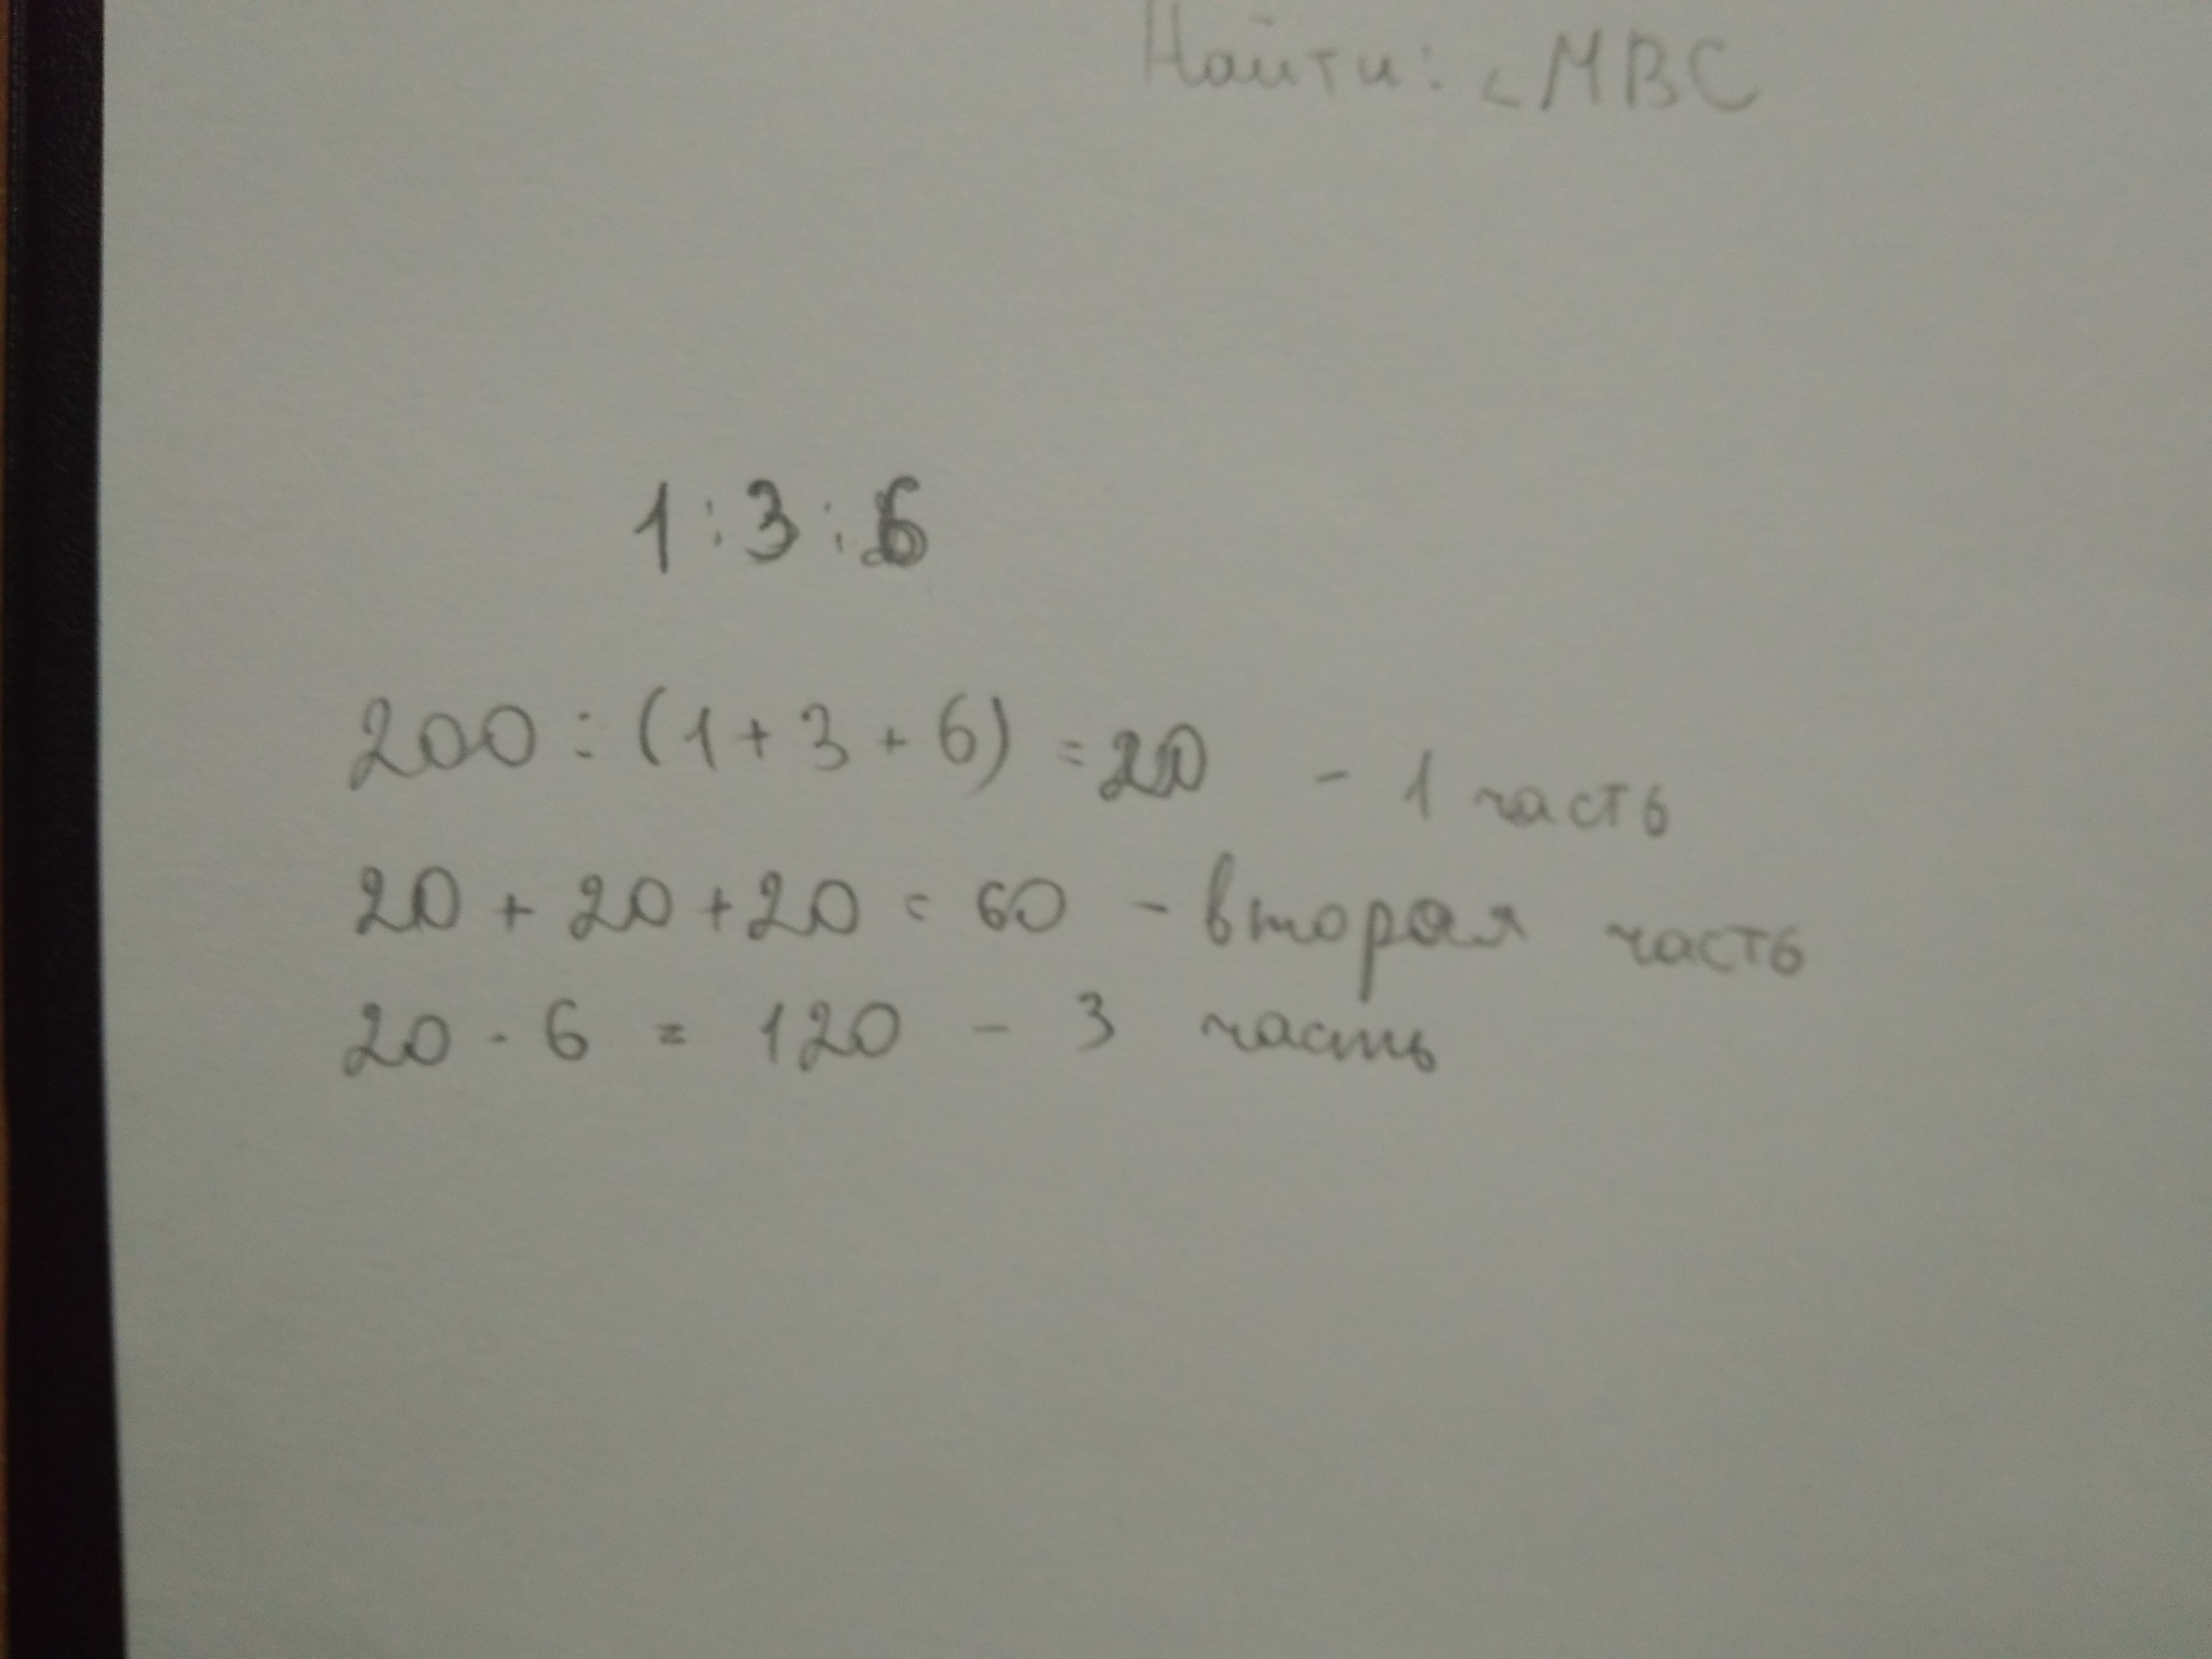 Найти: ∠MBC
1 : 3 : 6
200 : (1 + 3 + 6) = 20 - 1 часть
20 + 20 + 20 = 60 - вторая часть
20 · 6 = 120 - 3 часть